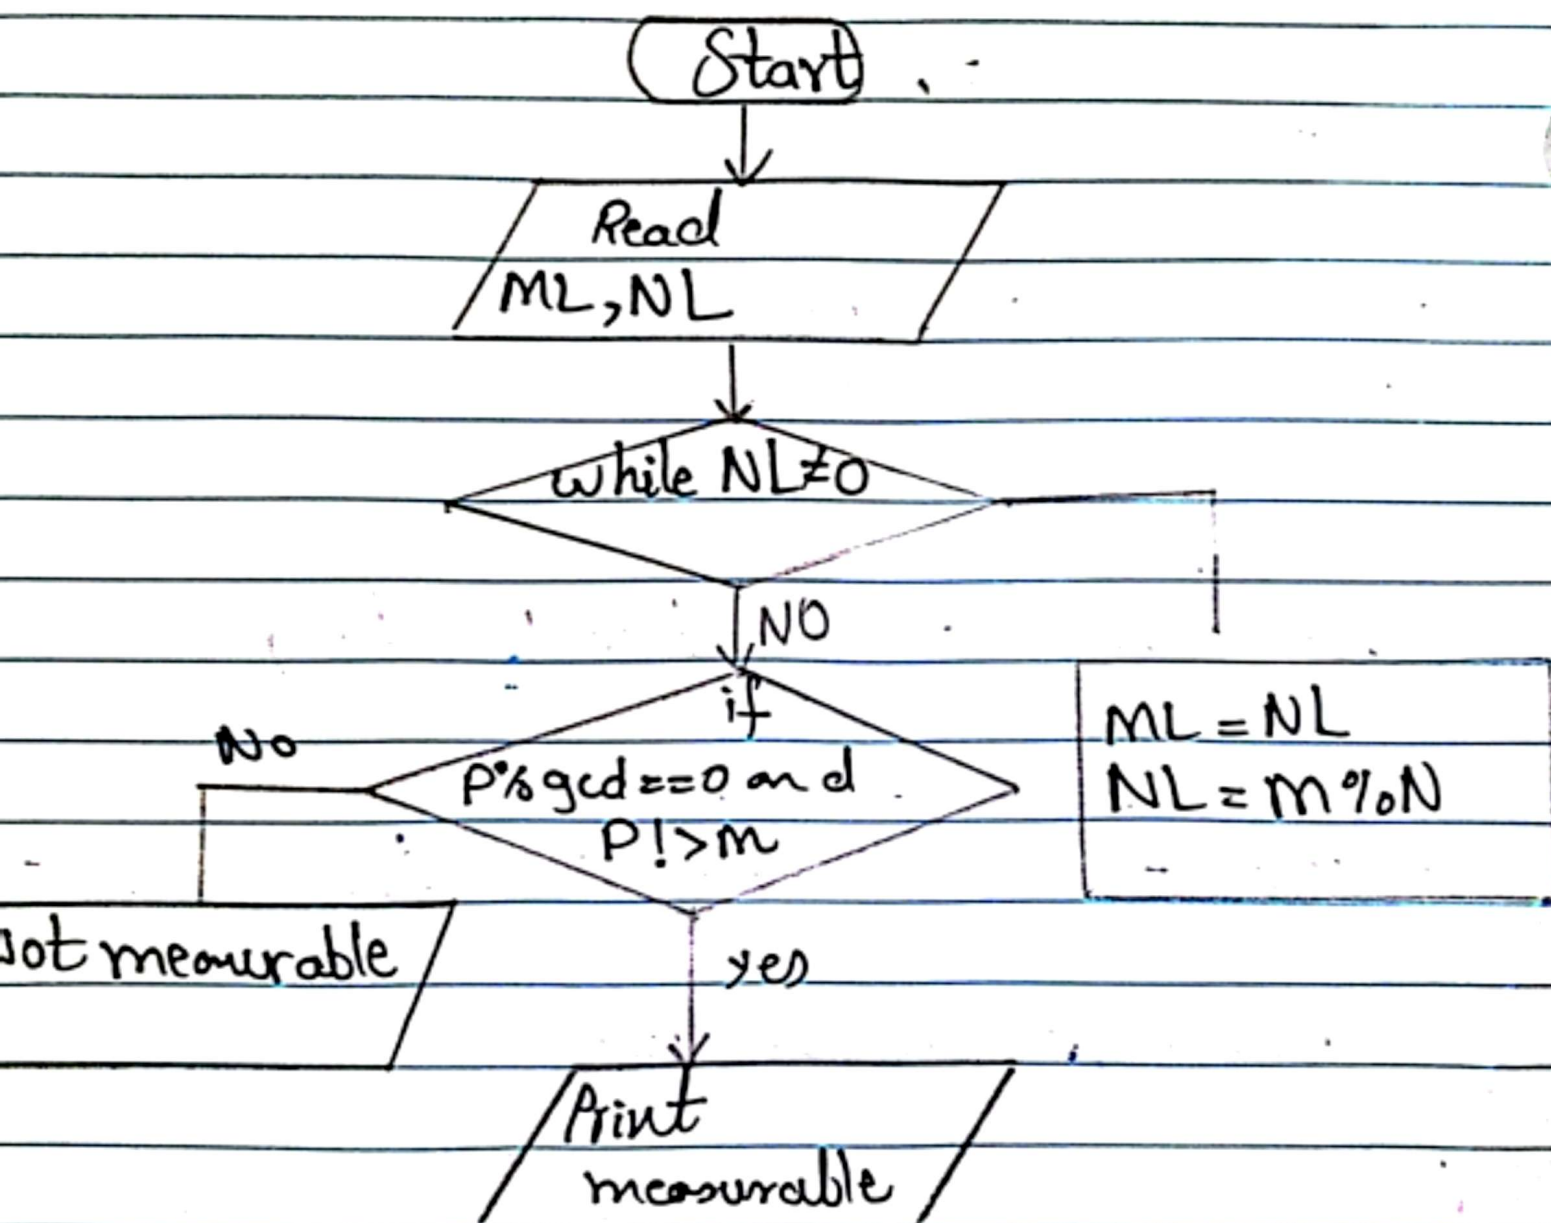 Start
Read
ML, NL
while NL≠0
NO
if
No
P%gcd==0 and
P!>m
ML=NL
NL=m%N
Not measurable
yes
Print
measurable